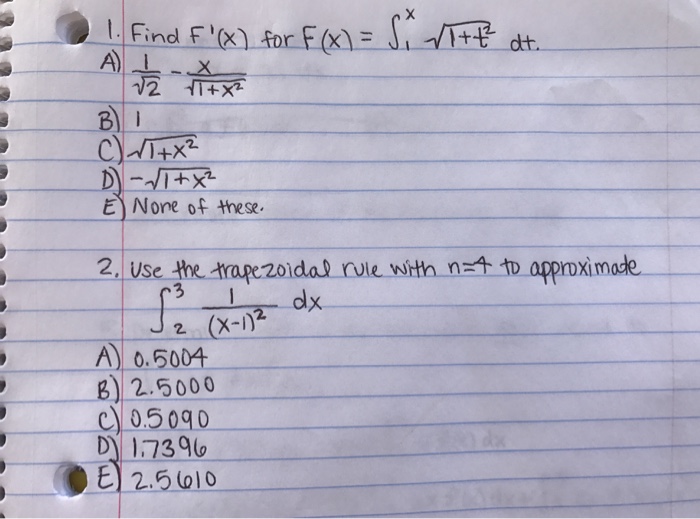 1. Find F'(x) for F(x) = ∫₁ˣ √1+t² dt.
A) 1/√2 - x/√1+x²
B) 1
C) √1+x²
D) -√1+x²
E) None of these.
2. Use the trapezoidal rule with n=4 to approximate
∫₂³ 1/(x-1)² dx
A) 0.5004
B) 2.5000
C) 0.5090
D) 1.7396
E) 2.5610